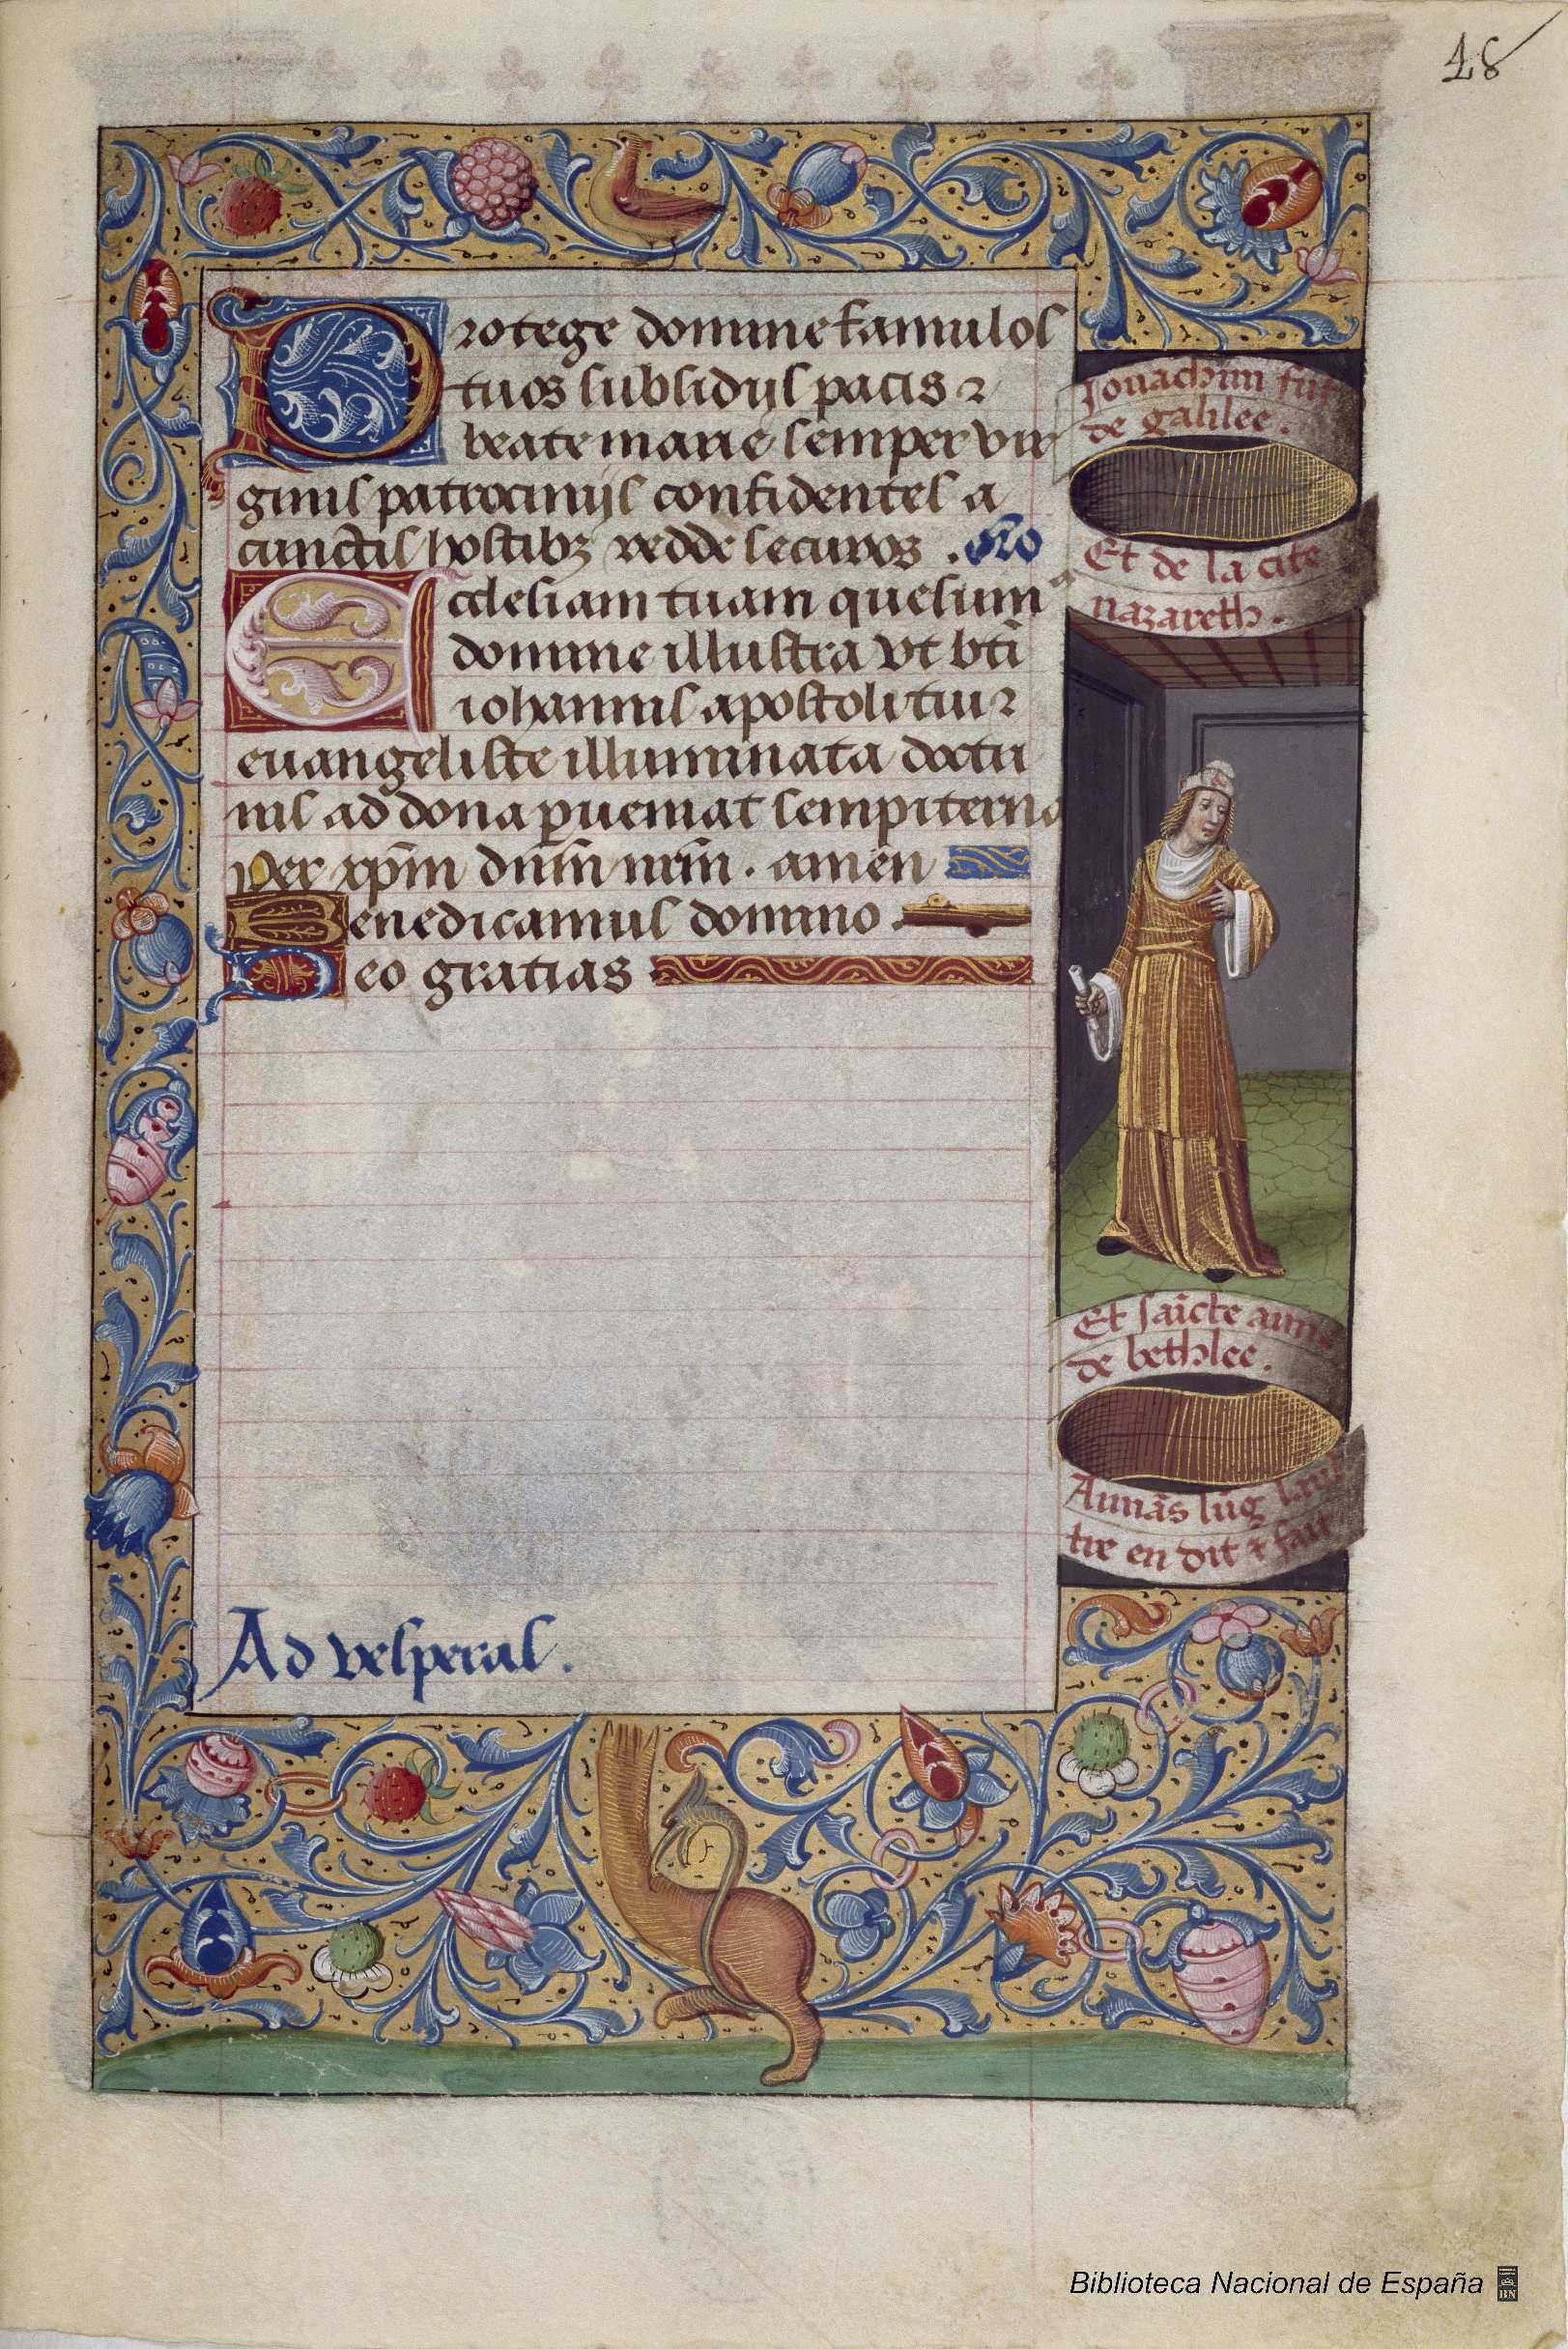 48
Protege domine famulos
tuos subsidijs pacis ⁊
beate marie semper vir
ginis patrocinijs confidentes a
cunctis hostibꝫ redde securos . Oro
Ecclesiam tuam quesumꝰ
domine illustra vt bti̅
iohannis apostoli tui ⁊
euangeliste illuminata doctri
nis ad dona ꝑueniat sempiterna
Per xp̅m dn̅m nr̅m . amen
Benedicamus domino .
Deo gratias
Ad vesperas .
Jouachim fut
de galilee .
Et de la cite
nazareth .
Et sai̅cte anne
de bethlee .
Aima̅s lu̅g laul
tre en dit ⁊ fait
Biblioteca Nacional de España
BN